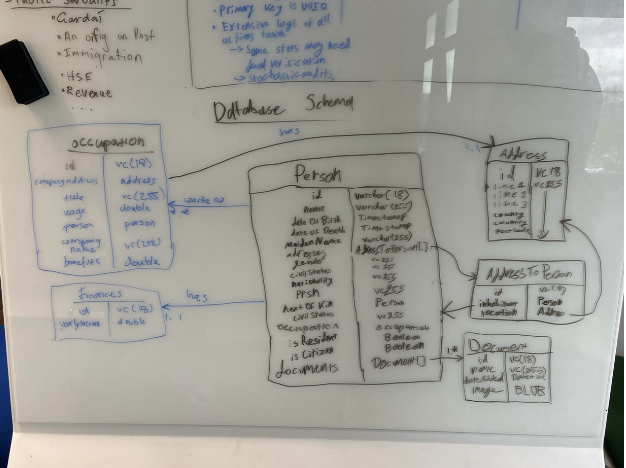 Public Servants
• Gardaí
• An Post
• Immigration
• HSE
• Revenue
...
• Primary key is UUID
• Extensive logs of all
actions taken
→ Some steps may need
dual verification
→ stochastic audits
Database Schema
occupation
id vc(18)
company address address
title vc(255)
wage double
person person
company name vc(255)
benefits double
works as
has
1..1
Address
id vc 18
line 1 vc 255
line 2
line 3
country
country
Person
id varchar(18)
name varchar(255)
date of Birth Timestamp
date of Death Timestamp
Maiden Name varchar(255)
address AddressToPerson[]
gender vc 255
civil status vc 255
nationality vc 255
PPSN vc 255
Next of Kin Person
civil status vc 255
occupation occupation
is Resident Boolean
is Citizen Boolean
documents Document[]
AddressToPerson
id vc(18)
inhabitant Person
location Address
finances
id vc(18)
double
has
1..1
1..*
Document
id vc(18)
name vc(255)
date Added
image BLOB